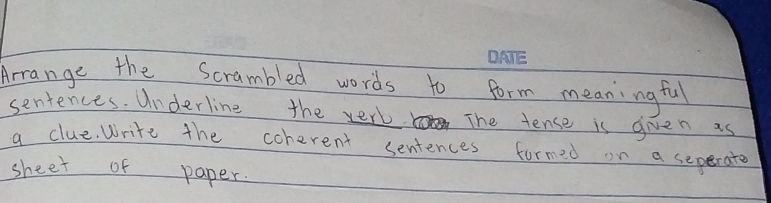 DATE
Arrange the Scrambled words to form meaningful
sentences. Underline the verb The tense is given as
a clue. Write the coherent sentences formed on a seperate
sheet of paper.